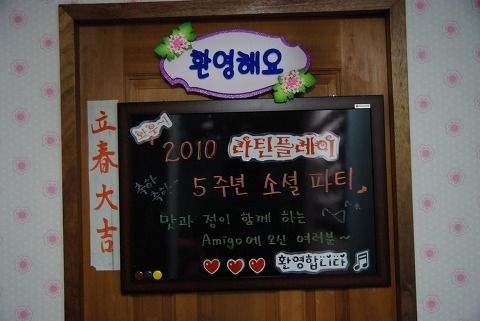 환영해요
立春大吉
2010 라틴플레이
축하 축하~
5주년 소셜 파티
맛과 정이 함께 하는
Amigo에 오신 여러분~
환영합니다